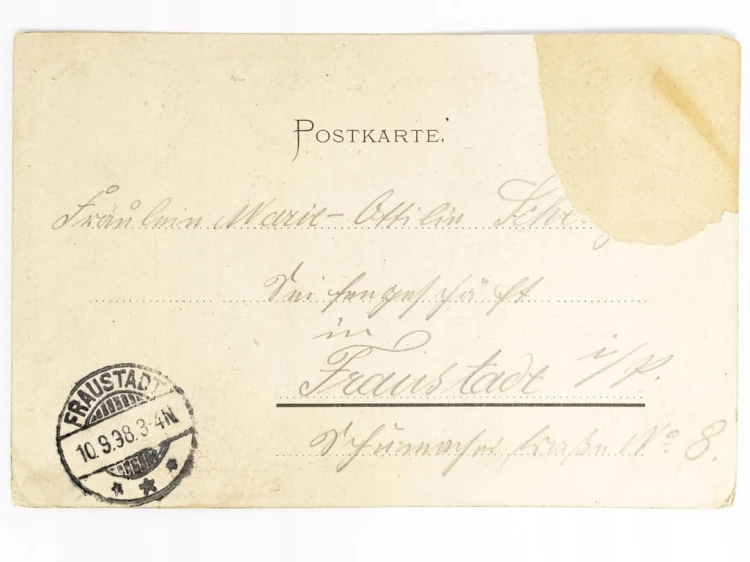 POSTKARTE.
Fräulein Marie-Ottilie
Seifengeschäft
in
Fraustadt i/P.
Schumacherstraße No 8.
FRAUSTADT
10.9.98.3-4N